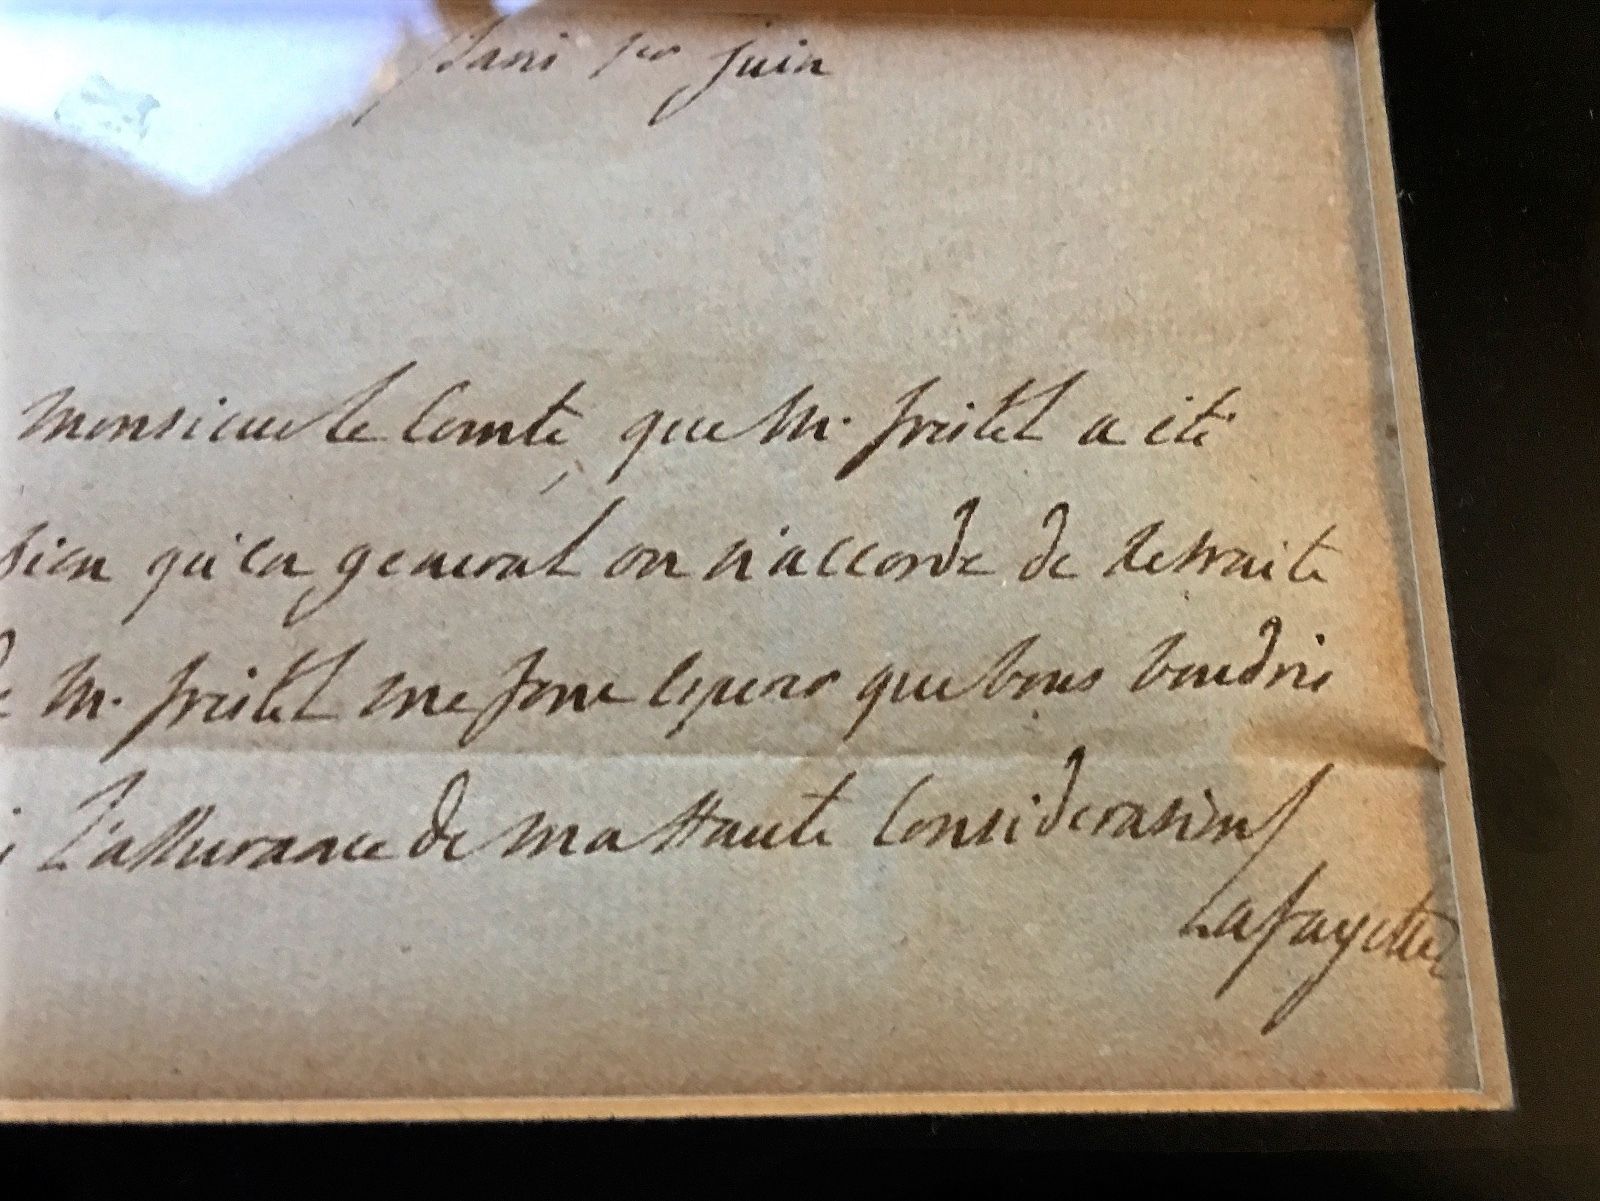 Paris 1er juin
Monsieur le Comte, que M. fristel a été
bien qu'en general on n'accorde de Retraite
de M. fristel me font esperer que vous voudrés
L'assurance de ma Haute Consideration
Lafayette